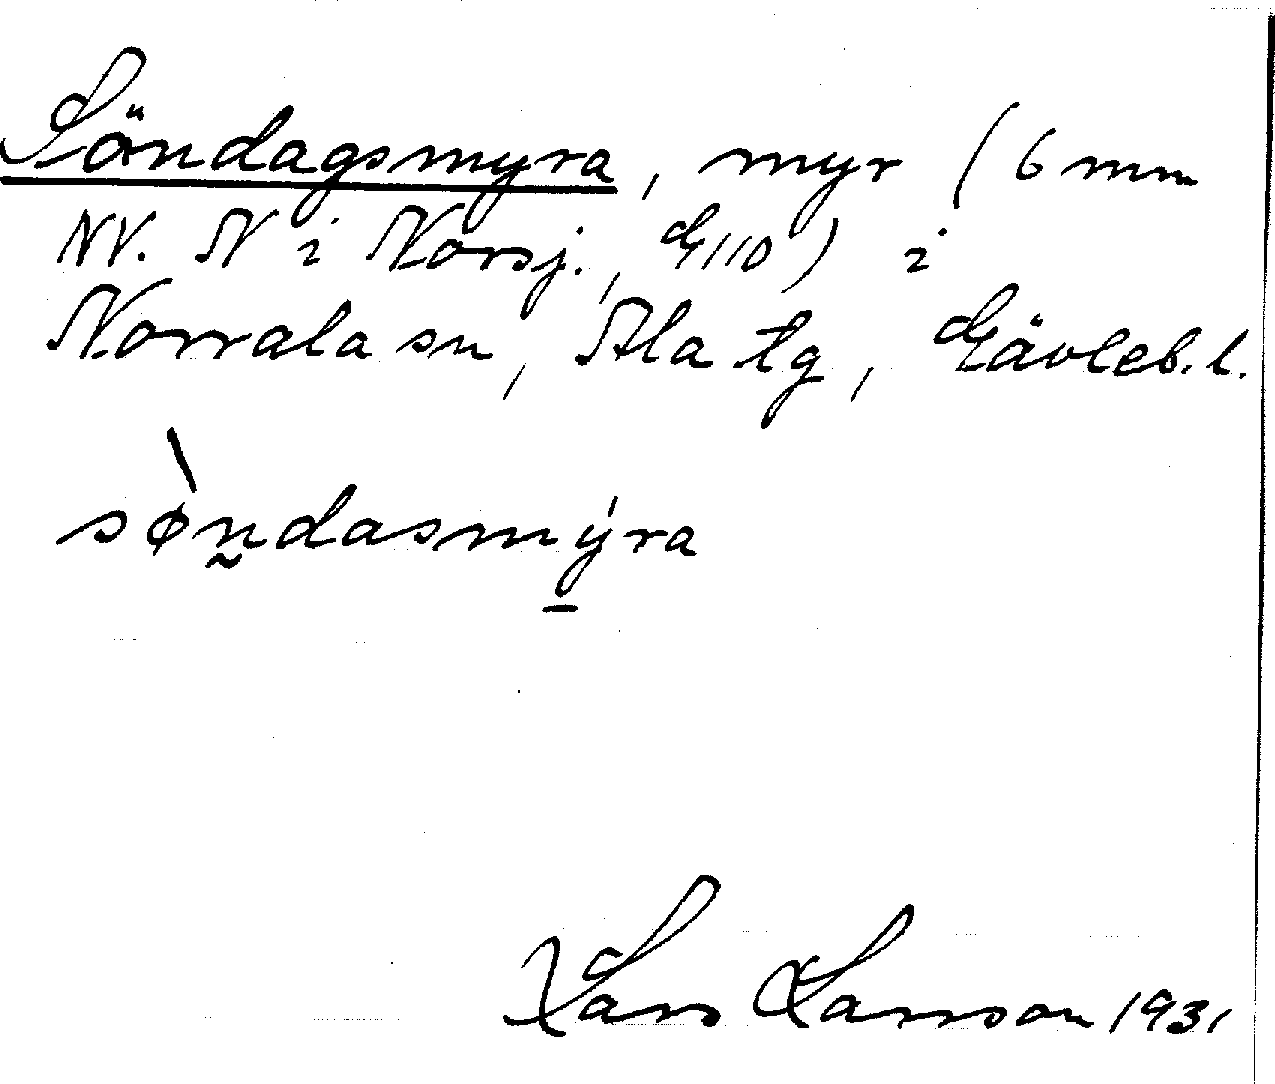 Söndagsmyra, myr (6 mm
NV. N i Norsj., G110) i
Norrala sn, Ala tg, Gävleb. l.
sø̀n̰dasmýra
Lars Larsson 1931